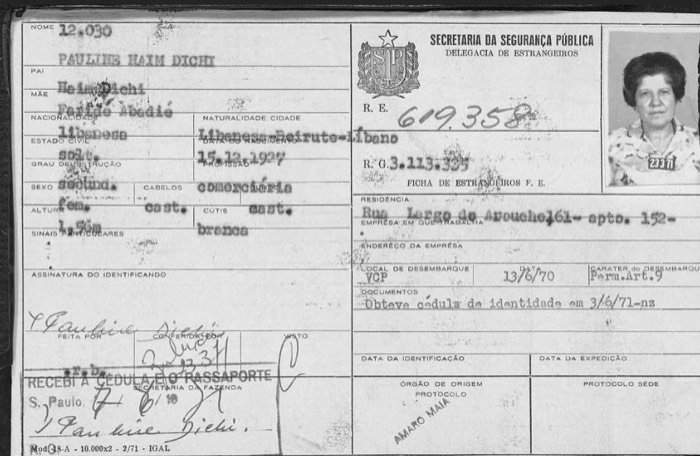 NOME 12.030
PAULINE HAIM DICHI
PAI
Haim Dichi
MÃE
Faridé Abadié
NACIONALIDADE NATURALIDADE CIDADE
libanesa Libanesa-Beirute-Líbano
ESTADO CIVIL DATA DO NASCIMENTO
solt. 15.12.1927
GRAU DE INSTRUÇÃO PROFISSÃO
secund. comerciária
SEXO CABELOS
fem. cast. cast.
ALTURA CÚTIS
1,58m branca
SINAIS PARTICULARES
ASSINATURA DO IDENTIFICANDO
Pauline Dichi
FEITA POR CONFERIDA POR VISTO
.r.b.
RECEBI A CÉDULA E O PASSAPORTE
SECRETARIA DA FAZENDA
S. Paulo, 7 6 19 71
Pauline Dichi.
Mod. 18-A - 10.000x2 - 2/71 - IGAL
SECRETARIA DA SEGURANÇA PÚBLICA
DELEGACIA DE ESTRANGEIROS
SP
R. E. 619.358
R. G. 3.113.335
FICHA DE ESTRANGEIROS F. E.
23371
RESIDÊNCIA
Rua Largo do Arouche, 161- apto. 152-
EMPRESA EM QUE TRABALHA
ENDEREÇO DA EMPRÊSA
LOCAL DE DESEMBARQUE DATA CARATER do DESEMBARQUE
VCP 13/6/70 Perm.Art.9
DOCUMENTOS
Obteve cédula de identidade em 3/6/71-nz
DATA DA IDENTIFICAÇÃO DATA DA EXPEDIÇÃO
ÓRGÃO DE ORIGEM PROTOCOLO SÉDE
PROTOCOLO
AMARO MAIA